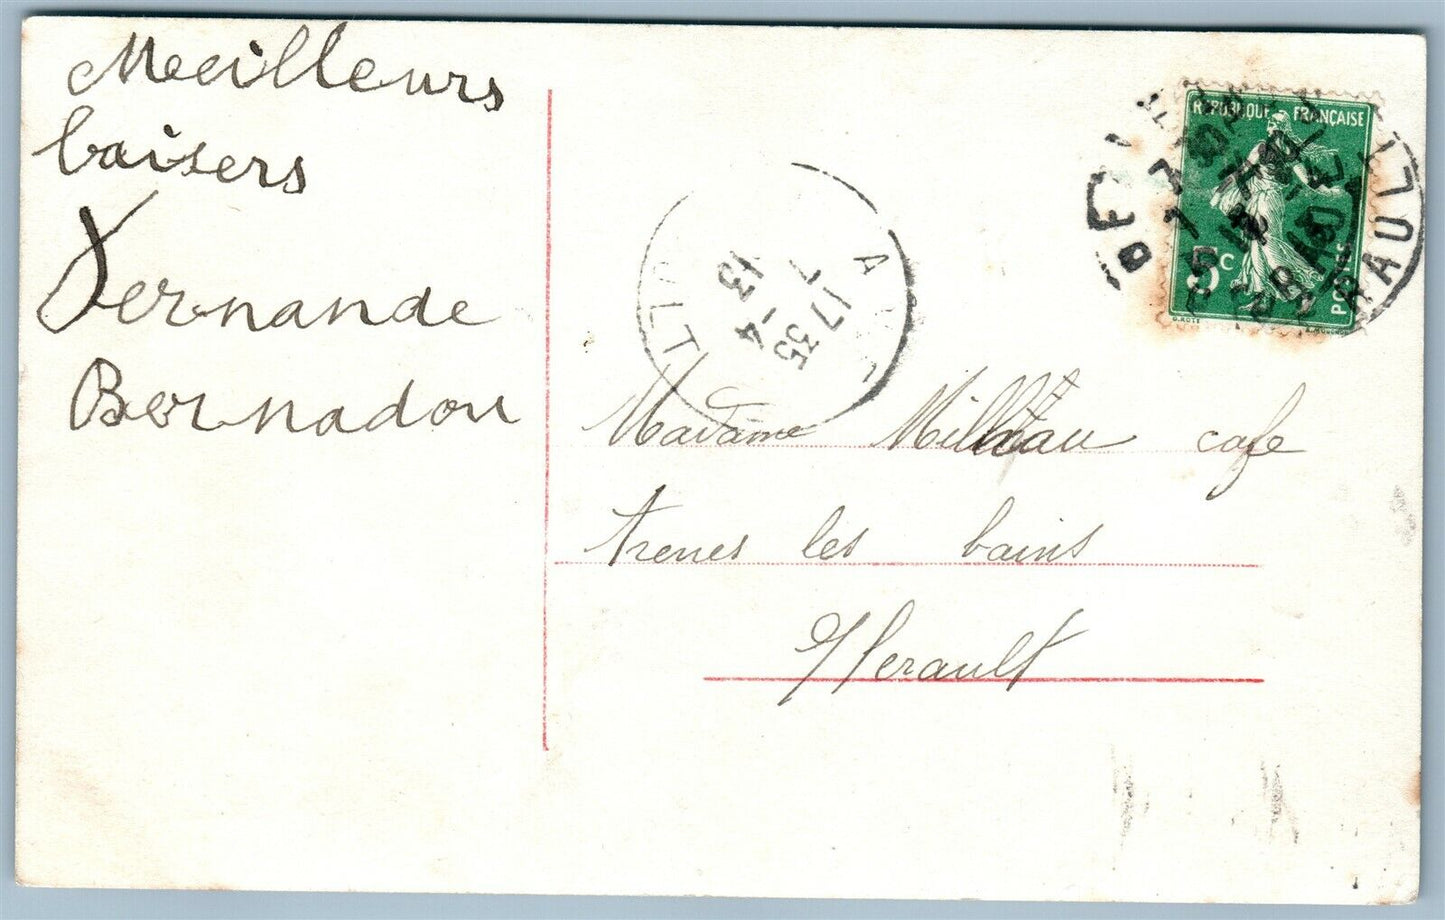 Meilleurs
baisers
Fernande
Bernadou
RÉPUBLIQUE FRANÇAISE
5c
POSTES
17 35
7 - 4
13
Madame Milhau cafe
trenes les bains
Herault